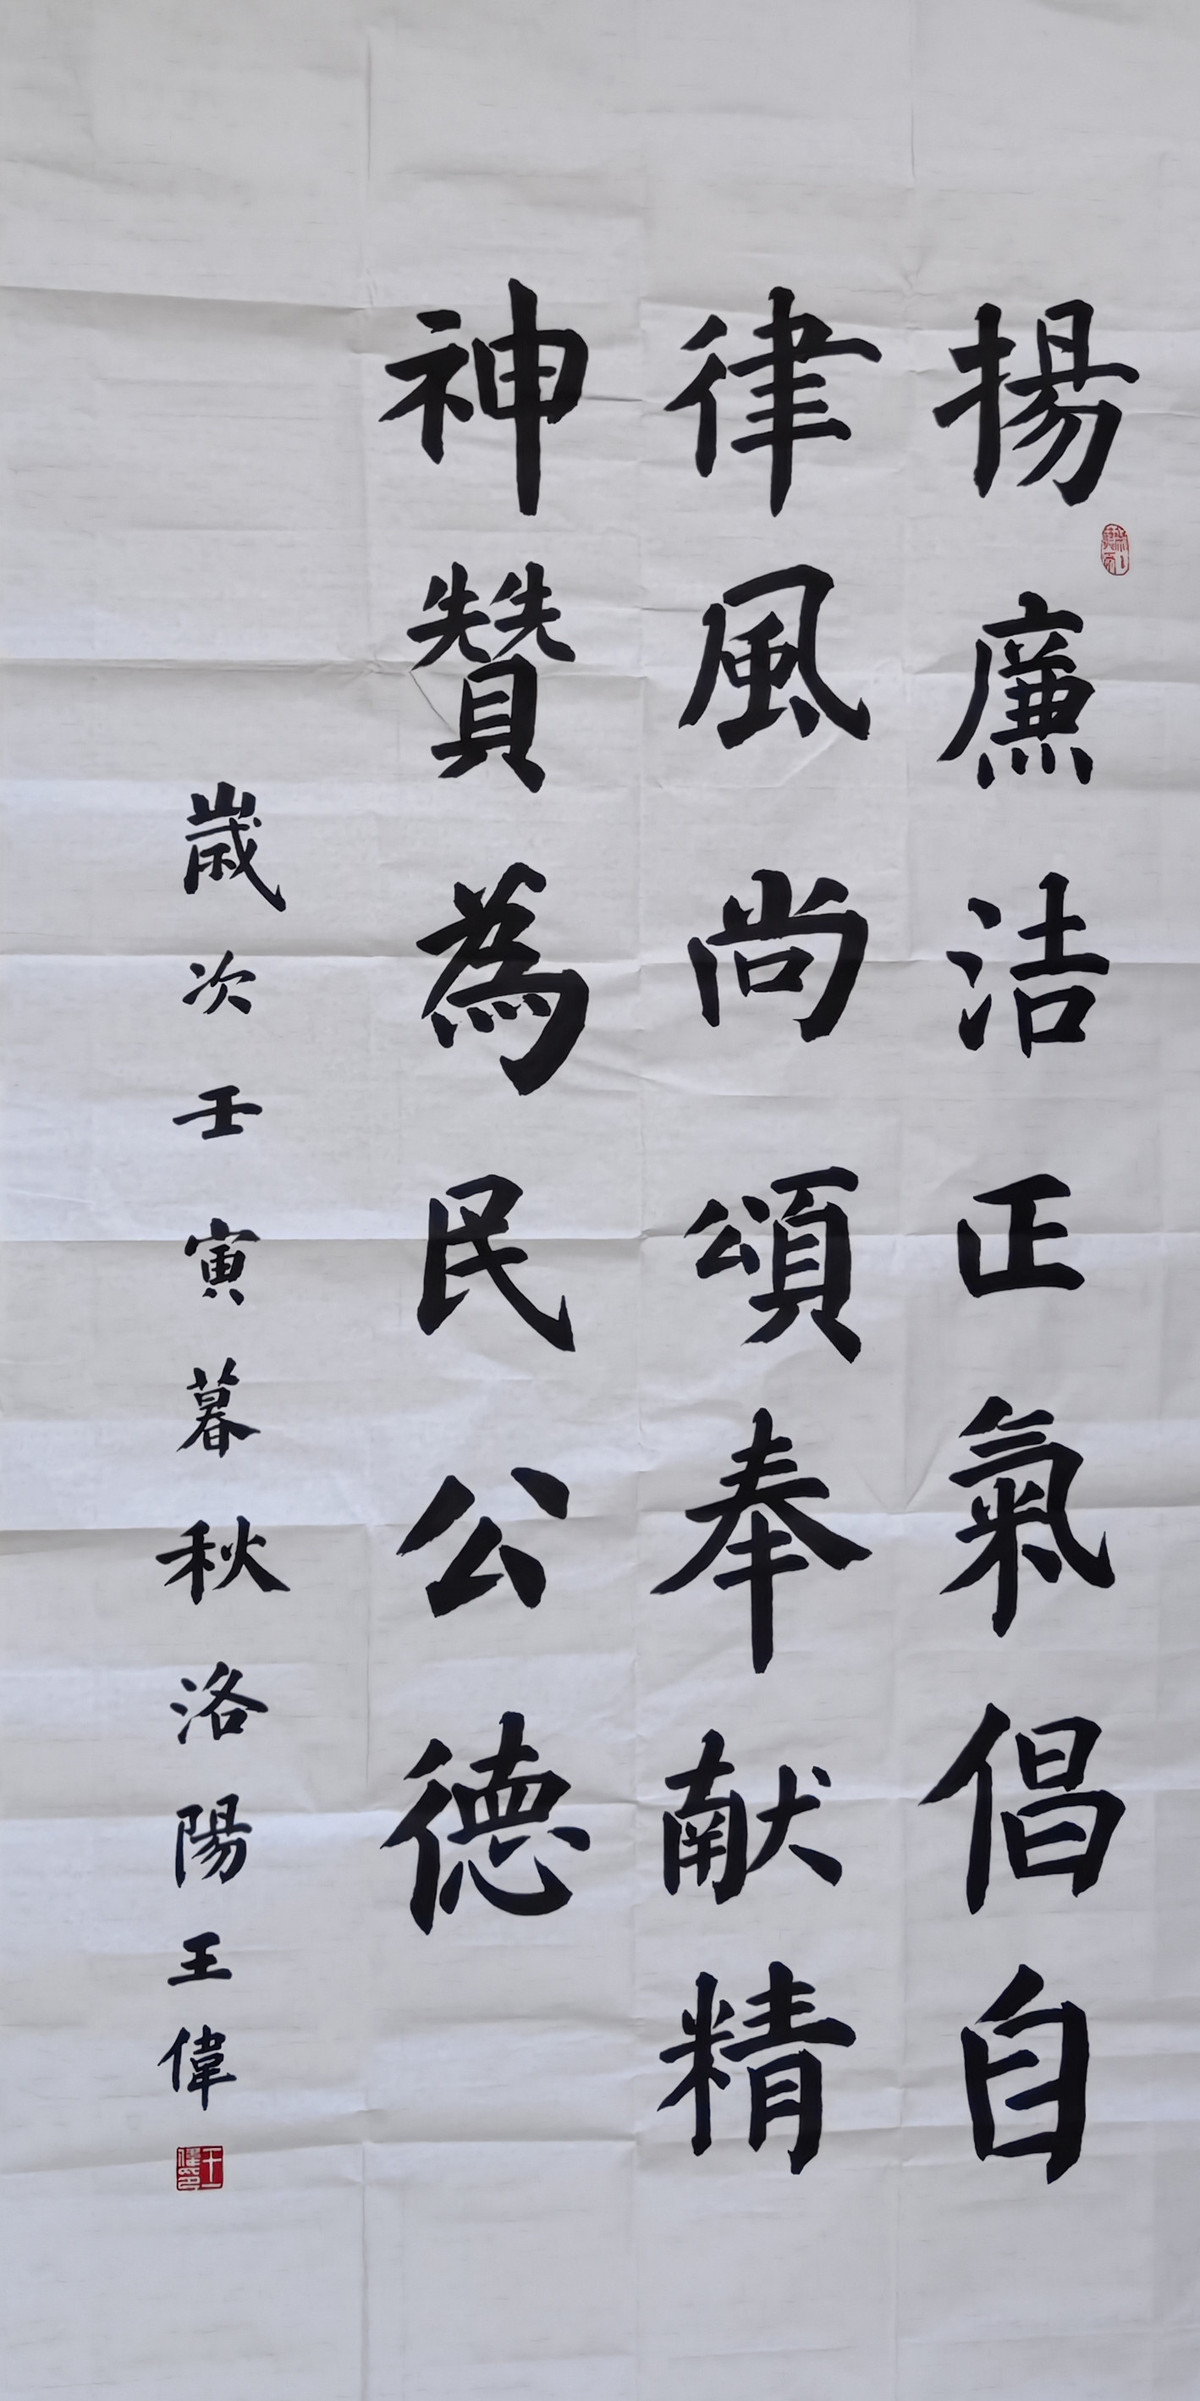 揚廉洁正氣倡自
律風尚頌奉献精
神贊為民公德
歲次壬寅暮秋洛陽王偉